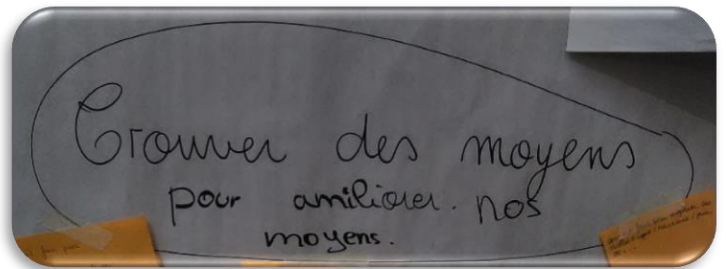 Trouver des moyens
pour amiliorer. nos
moyens.